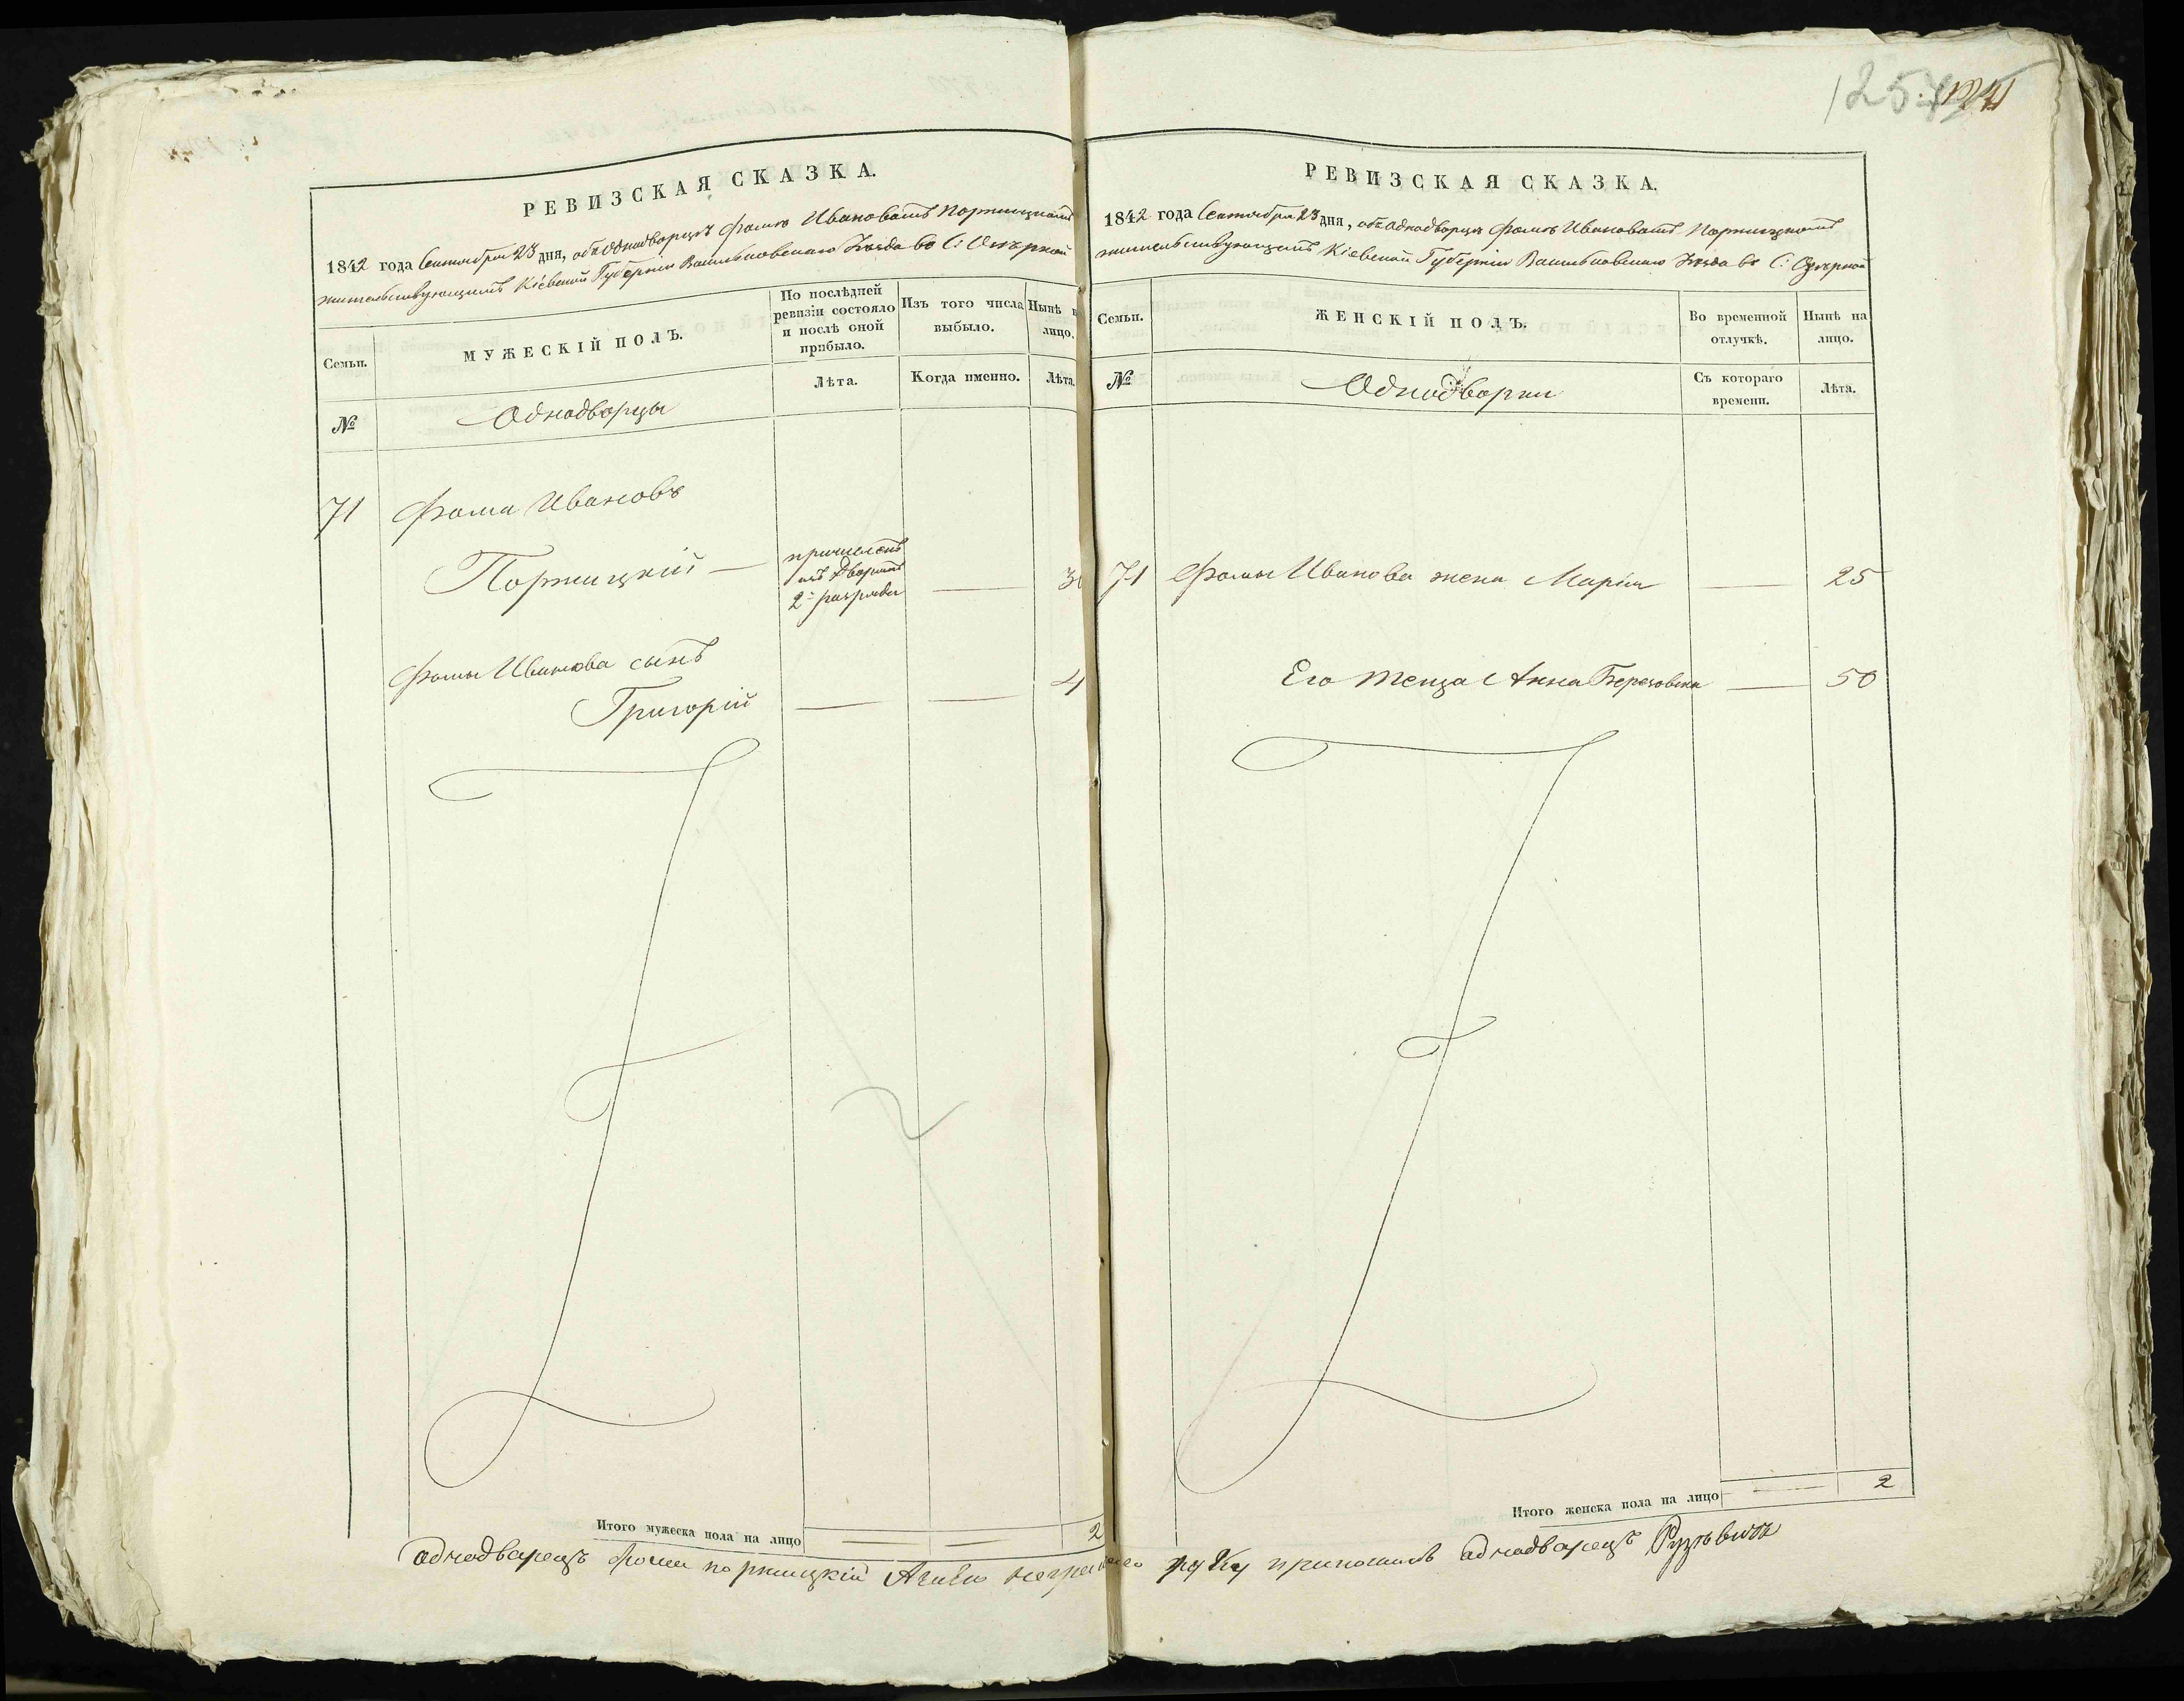 РЕВИЗСКАЯ СКАЗКА.
1842 года Сентября 23 дня, объ Однодворцѣ Фомѣ Ивановомъ Портицкомъ
жительствующимъ Кіевской Губерніи Васильковскаго Уѣзда въ С:
Семьи.
МУЖЕСКІЙ ПОЛЪ.
По послѣдней ревизіи состояло и послѣ оной прибыло.
Изъ того числа выбыло.
Нынѣ на лицо.
№
Однодворцы
Лѣта.
Когда именно.
Лѣта.
71 Фома Ивановъ
Портицкій —
причисленъ
изъ Дворянъ
2го разряда
—
Фомы Иванова сынъ
Григорій — — 4
Итого мужеска пола на лицо — — 2
однодварецъ фома портицкій Азанѣго неграмотнаго
1257
РЕВИЗСКАЯ СКАЗКА.
1842 года Сентября 23 дня, объ Однодворцѣ Фомѣ Ивановомъ Портицкомъ
жительствующимъ Кіевской Губерніи Васильковскаго Уѣзда въ С:
Семьи.
ЖЕНСКІЙ ПОЛЪ.
Во временной отлучкѣ.
Нынѣ на лицо.
№
Однодворки
Съ котораго времени.
Лѣта.
71 Фомы Иванова жена Марія — 25
Его теща Анна Березовска — 50
Итого женска пола на лицо — 2
руку приложилъ однодварецъ